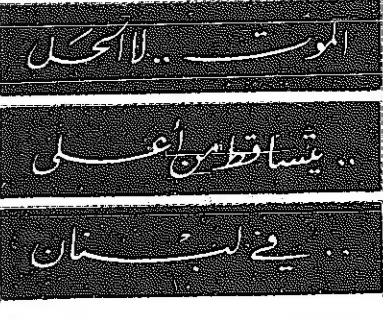 الموت .. لا الحل
.. يتساقط من أعلى
.. في لبنان